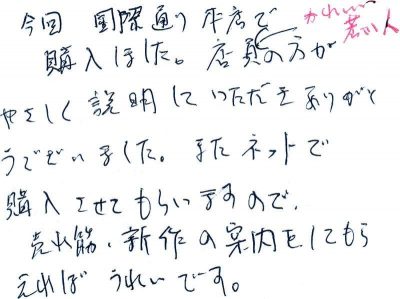 今回 国際通り本店で
購入しました。店員の方が
かわいい
若い人
やさしく説明していただきありがと
うございました。またネットで
購入させてもらいますので、
売れ筋、新作の案内をしてもら
えればうれしいです。